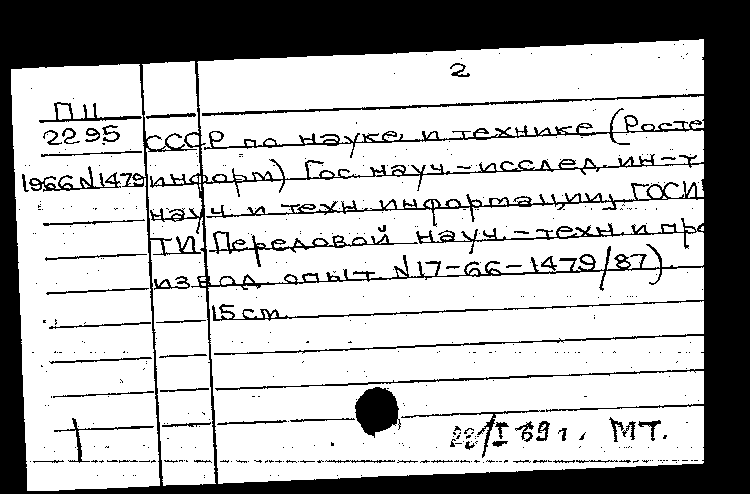 2
П II
2295 СССР по науке и технике (Росте
1966 N1479 информ) Гос. науч.-исслед. ин-т
науч. и техн. информации, ГОСИ
ТИ. Передовой науч.-техн. и про
извод. опыт N17-66-1479/87).
15 см.
/I 69 г. МТ.